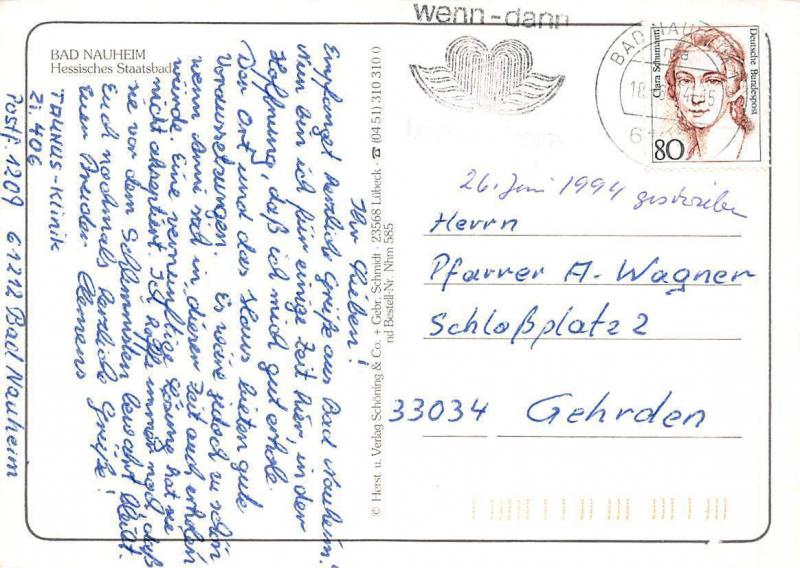 BAD NAUHEIM
Hessisches Staatsbad
wenn-dann
BAD NAUHEIM
18
61
Clara Schumann
Deutsche Bundespost
80
26. Juni 1994 geschrieben
Herrn
Pfarrer A. Wagner
Schloßplatz 2
33034 Gehrden
© Herst. u. Verlag Schöning & Co. + Gebr. Schmidt · 23568 Lübeck · ☎ (04 51) 310 310 0
nd Bestell-Nr. Nhm 585
Ihr Lieben!
Empfangt herzliche Grüße aus Bad Nauheim!
Nun bin ich für einige Zeit hier, in der
Hoffnung, daß ich mich gut erhole.
Der Ort und das Haus bieten gute
Voraussetzungen. Es wäre jedoch zu schön
wenn Anni sich in dieser Zeit auch erholen
würde. Eine vernünftige Lösung hat sie
nicht akzeptiert. Ich hoffe immer noch, daß
sie vor dem Schlimmsten bewahrt bleibt.
Euch nochmals herzliche Grüße!
Euer Clemens
TAUNUS-Klinik
Zi. 406
Postf. 1209 61212 Bad Nauheim